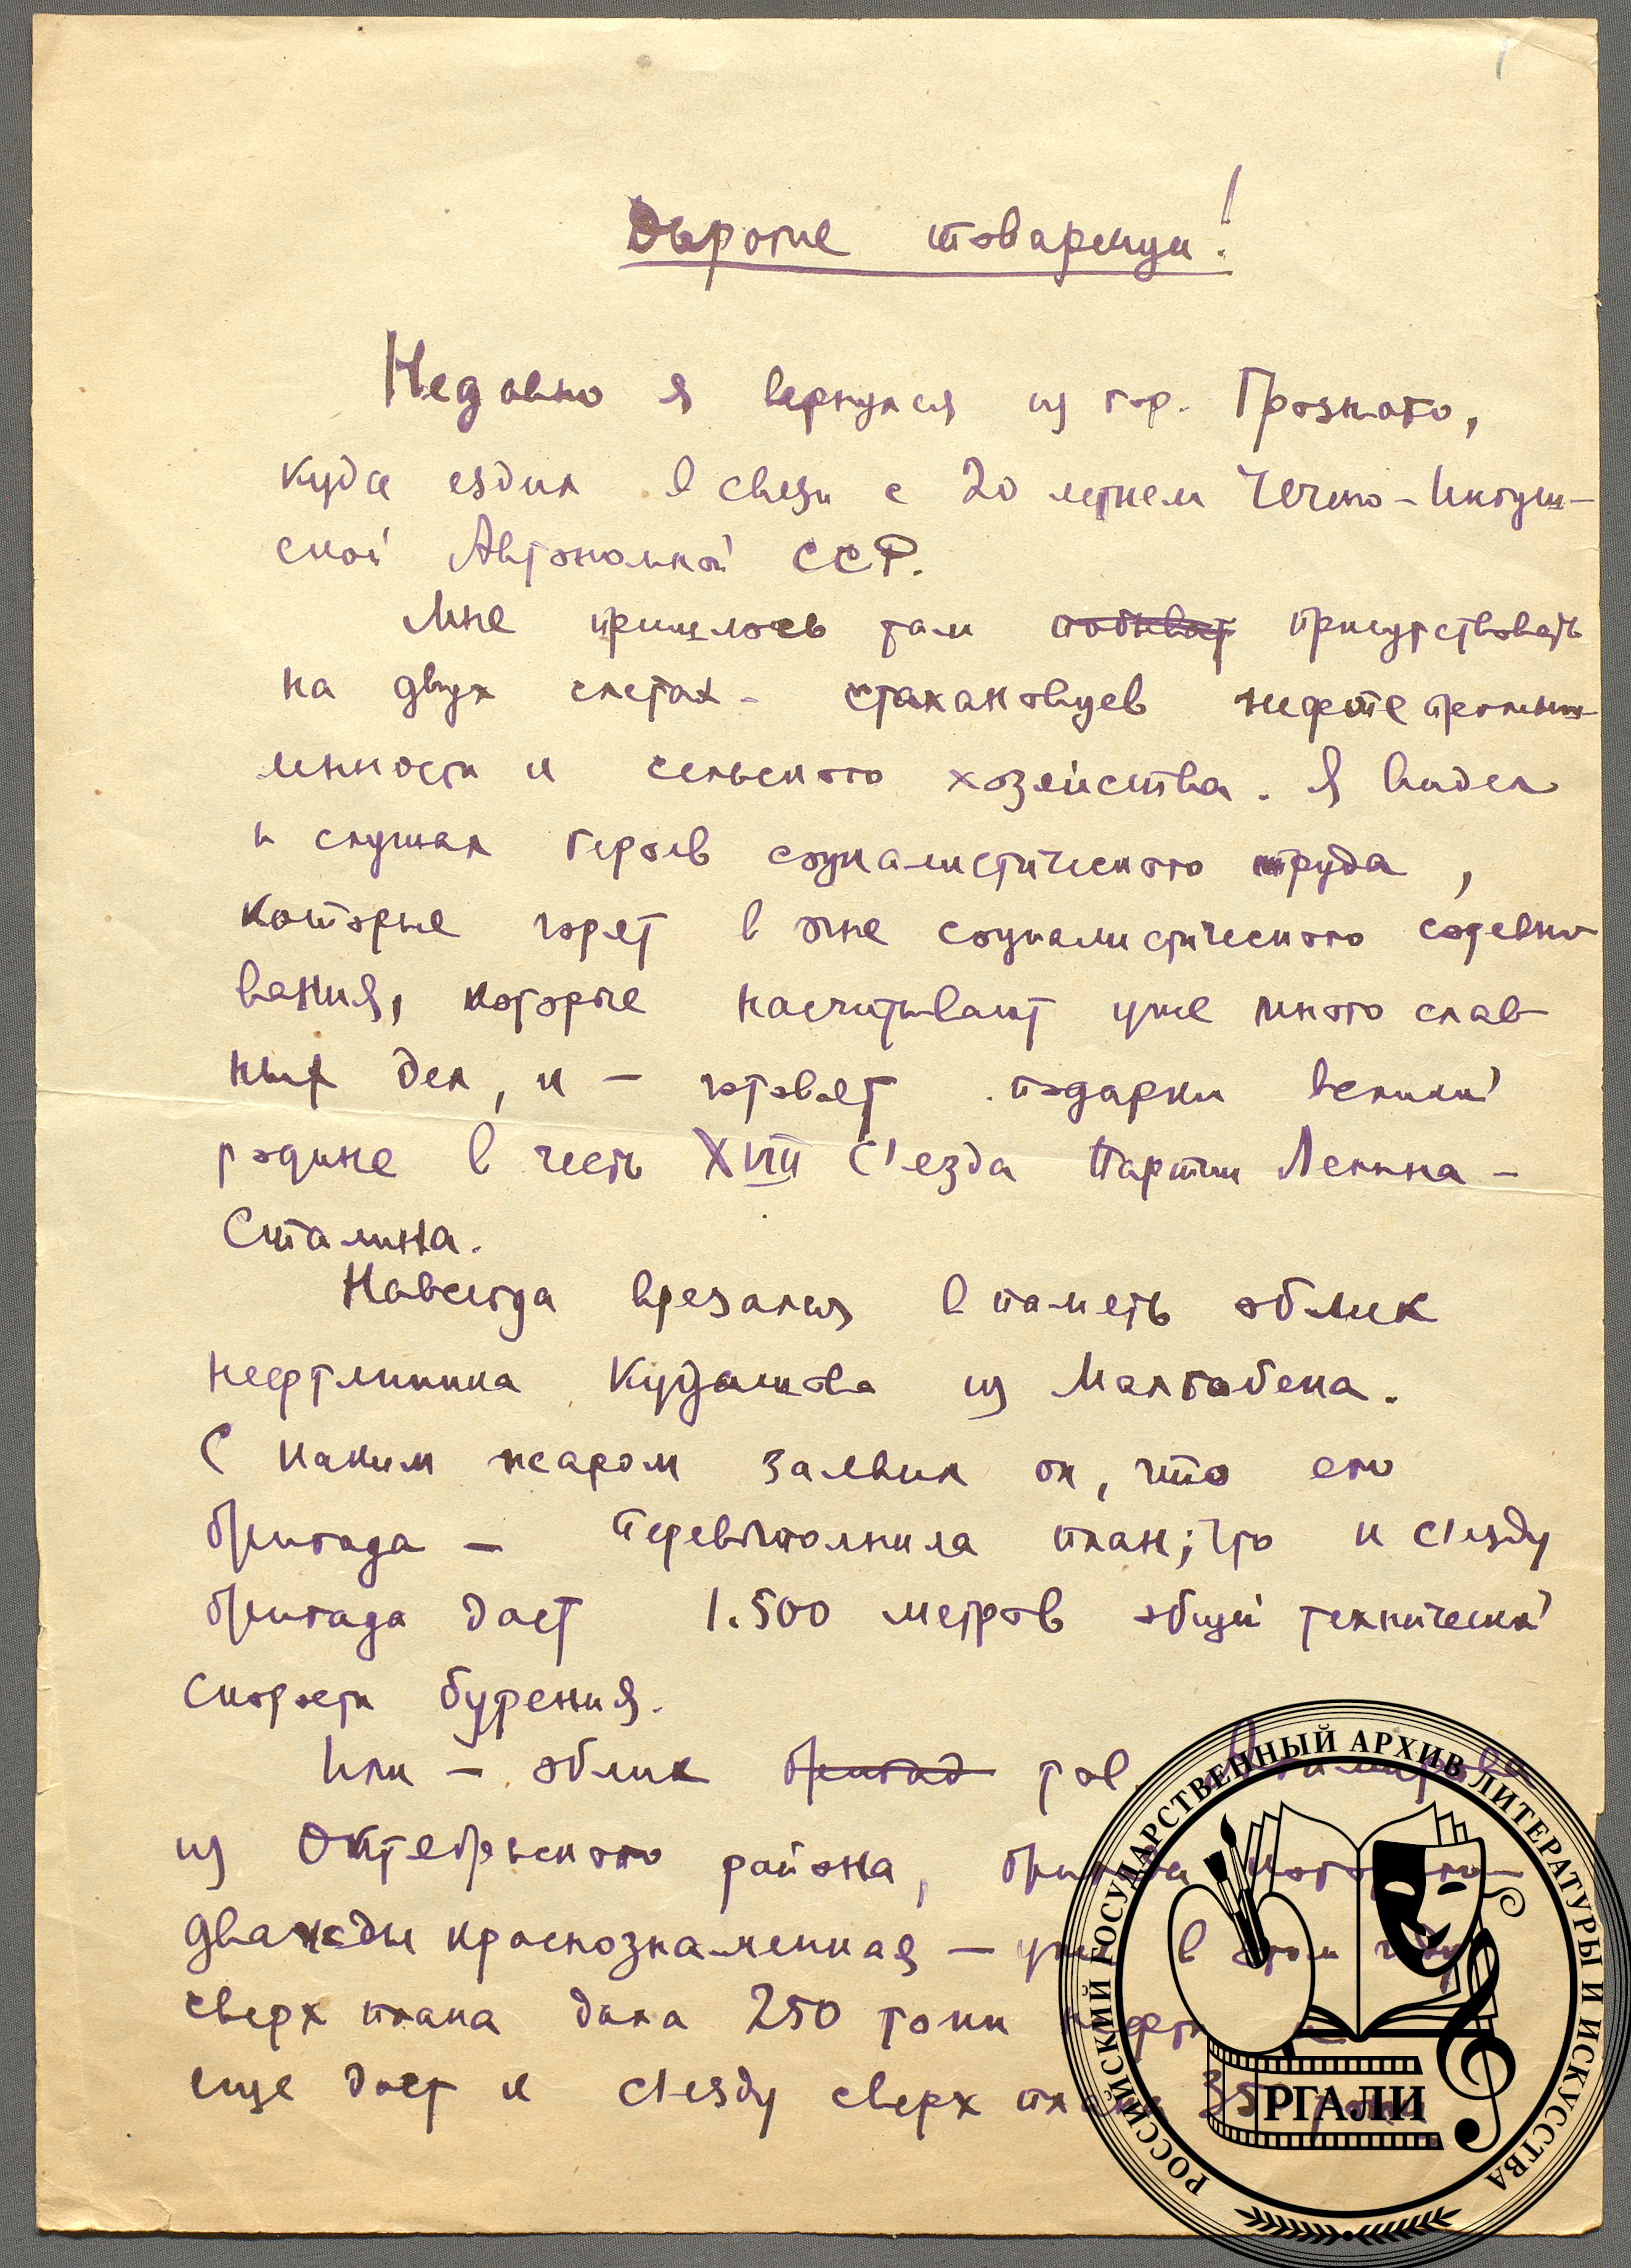 Дорогие товарищи!
Недавно я вернулся из гор. Грозного,
куда ездил в связи с 20 летием Чечено-Ингуш-
ской Автономной ССР.
Мне пришлось там побыват присутствовать
на двух слетах - стахановцев нефтепромыш-
ленности и сельского хозяйства. Я видел
и слушал героев социалистического труда,
которые горят в огне социалистического соревно-
вания, которые насчитывают уже много слав-
ных дел, и - готовят подарки великой
родине в честь XVIII С'езда Партии Ленина -
Сталина.
Навсегда врезался в память облик
нефтяника Кудашова из Малгобека.
С каким жаром заявил он, что его
бригада - перевыполнила план; что к с'езду
бригада даст 1.500 метров общей технической
скорости бурения.
Или - облик бригад тов.
из Октябрьского района, бригада которого -
дважды краснознаменная - уже в этом году
сверх плана дала 250 тонн нефти и
еще даст к с'езду сверх плана 350 тонн
РОССИЙСКИЙ ГОСУДАРСТВЕННЫЙ АРХИВ ЛИТЕРАТУРЫ И ИСКУССТВА
РГАЛИ